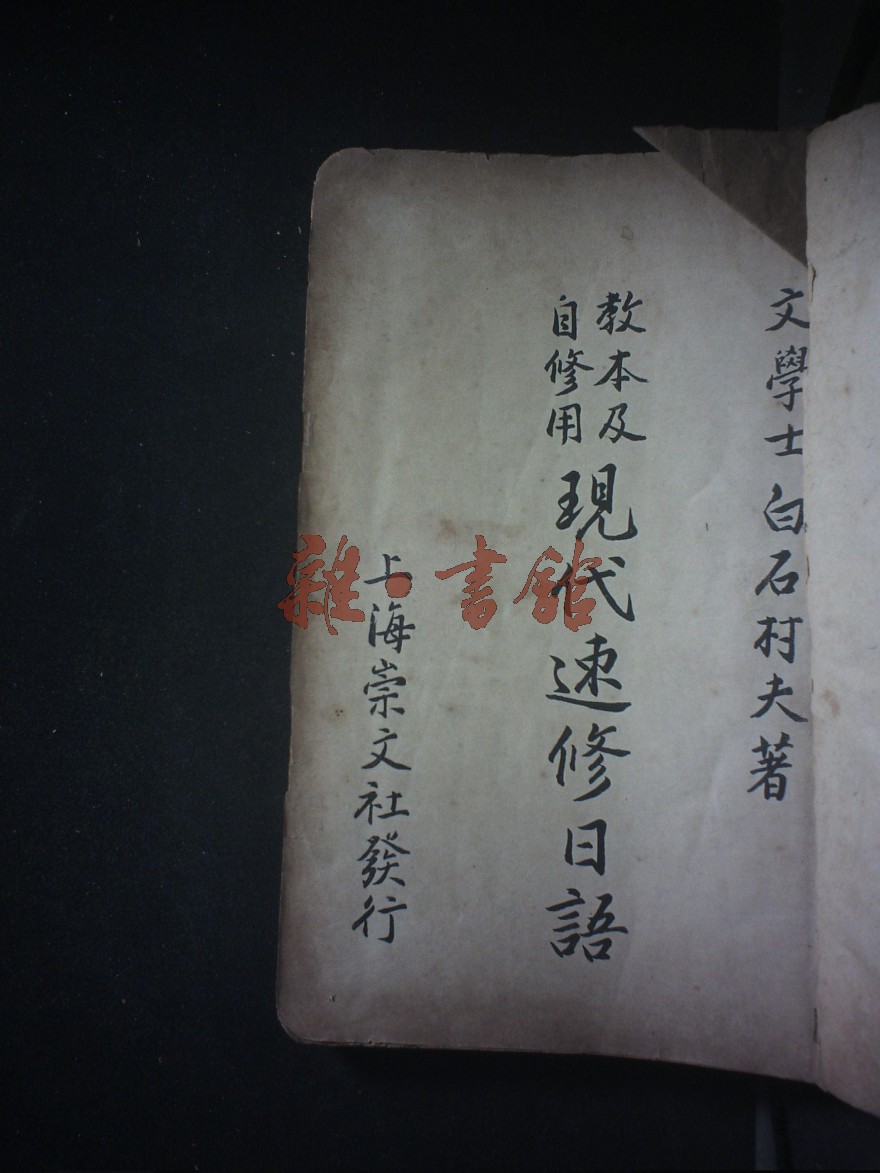 文學士 白石村夫著
教本及
自修用
現代速修日語
上海崇文社發行
雜·書館